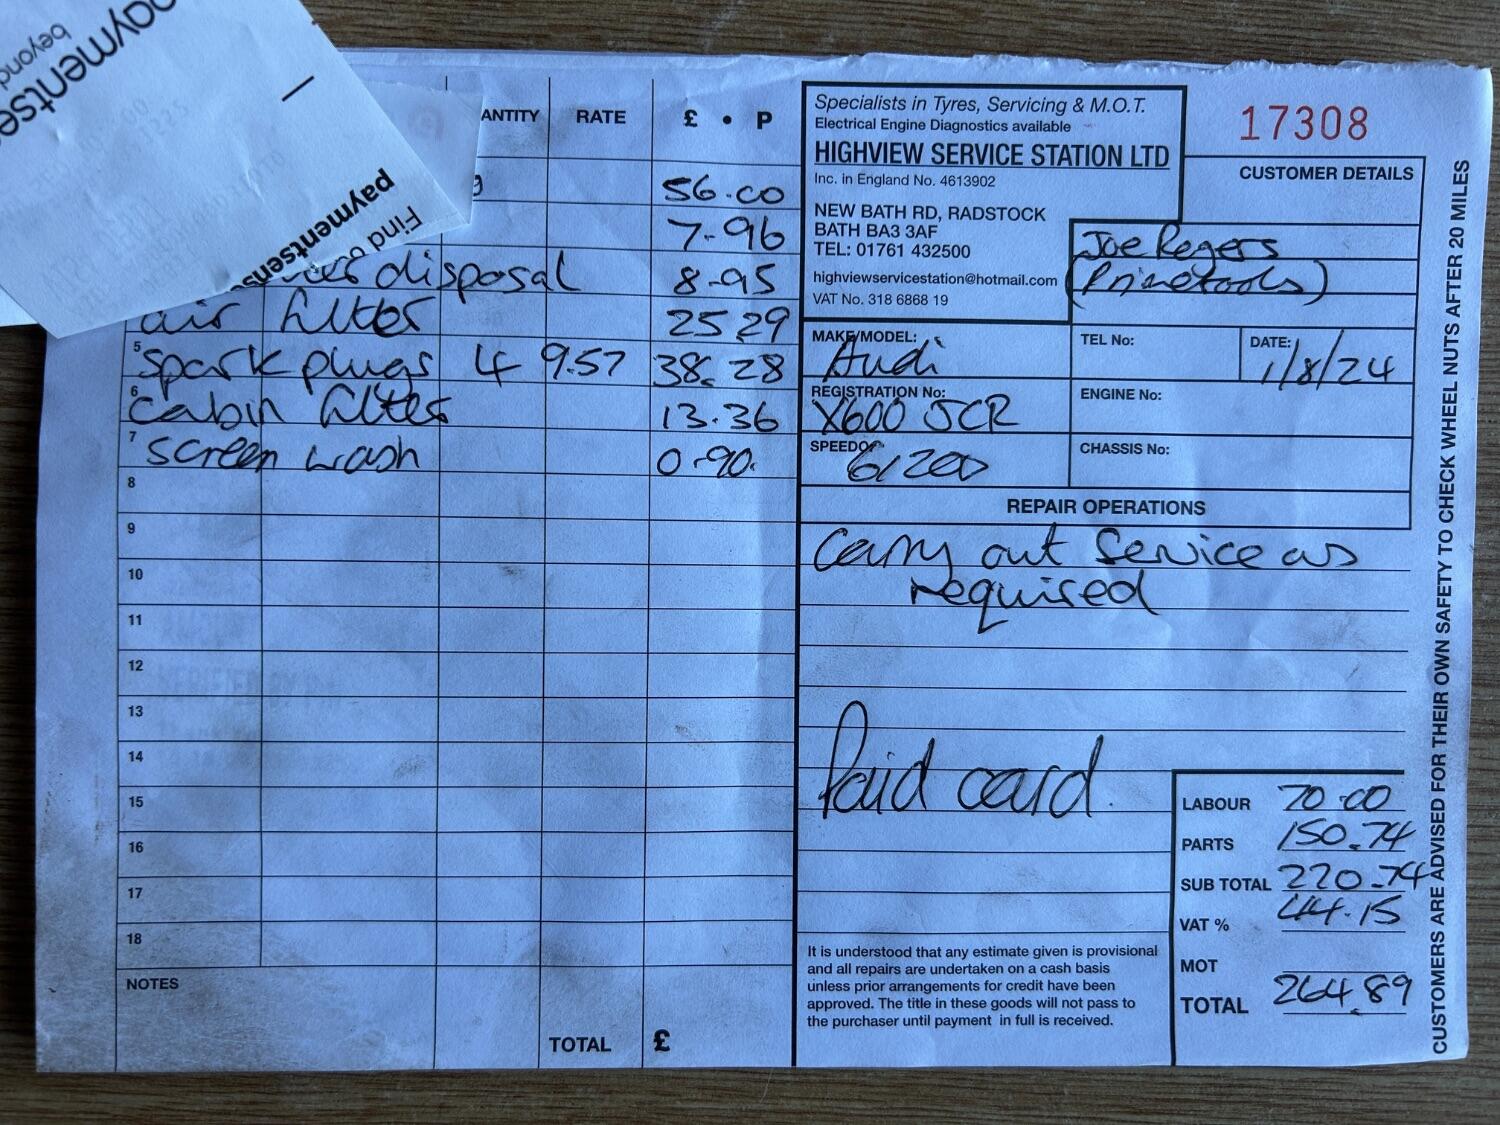 paymentse
beyond
Find o
paymentsens
ANTITY RATE £ • P
56.00
7-96
disposal 8-95
air filter 25 29
5 spark plugs 4 9.57 38.28
6 cabin filter 13.36
7 screen wash 0.90.
8
9
10
11
12
13
14
15
16
17
18
NOTES
TOTAL £
Specialists in Tyres, Servicing & M.O.T.
Electrical Engine Diagnostics available
HIGHVIEW SERVICE STATION LTD
Inc. in England No. 4613902
NEW BATH RD, RADSTOCK
BATH BA3 3AF
TEL: 01761 432500
highviewservicestation@hotmail.com
VAT No. 318 6868 19
17308
CUSTOMER DETAILS
Joe Rogers
MAKE/MODEL: Audi
TEL No:
DATE: 1/8/24
REGISTRATION No: X600 JCR
ENGINE No:
SPEEDO: 61200
CHASSIS No:
REPAIR OPERATIONS
Carry out service as
required
Paid card.
LABOUR 70.00
PARTS 150.74
SUB TOTAL 220.74
VAT % 44.15
MOT
TOTAL 264.89
It is understood that any estimate given is provisional
and all repairs are undertaken on a cash basis
unless prior arrangements for credit have been
approved. The title in these goods will not pass to
the purchaser until payment in full is received.
CUSTOMERS ARE ADVISED FOR THEIR OWN SAFETY TO CHECK WHEEL NUTS AFTER 20 MILES